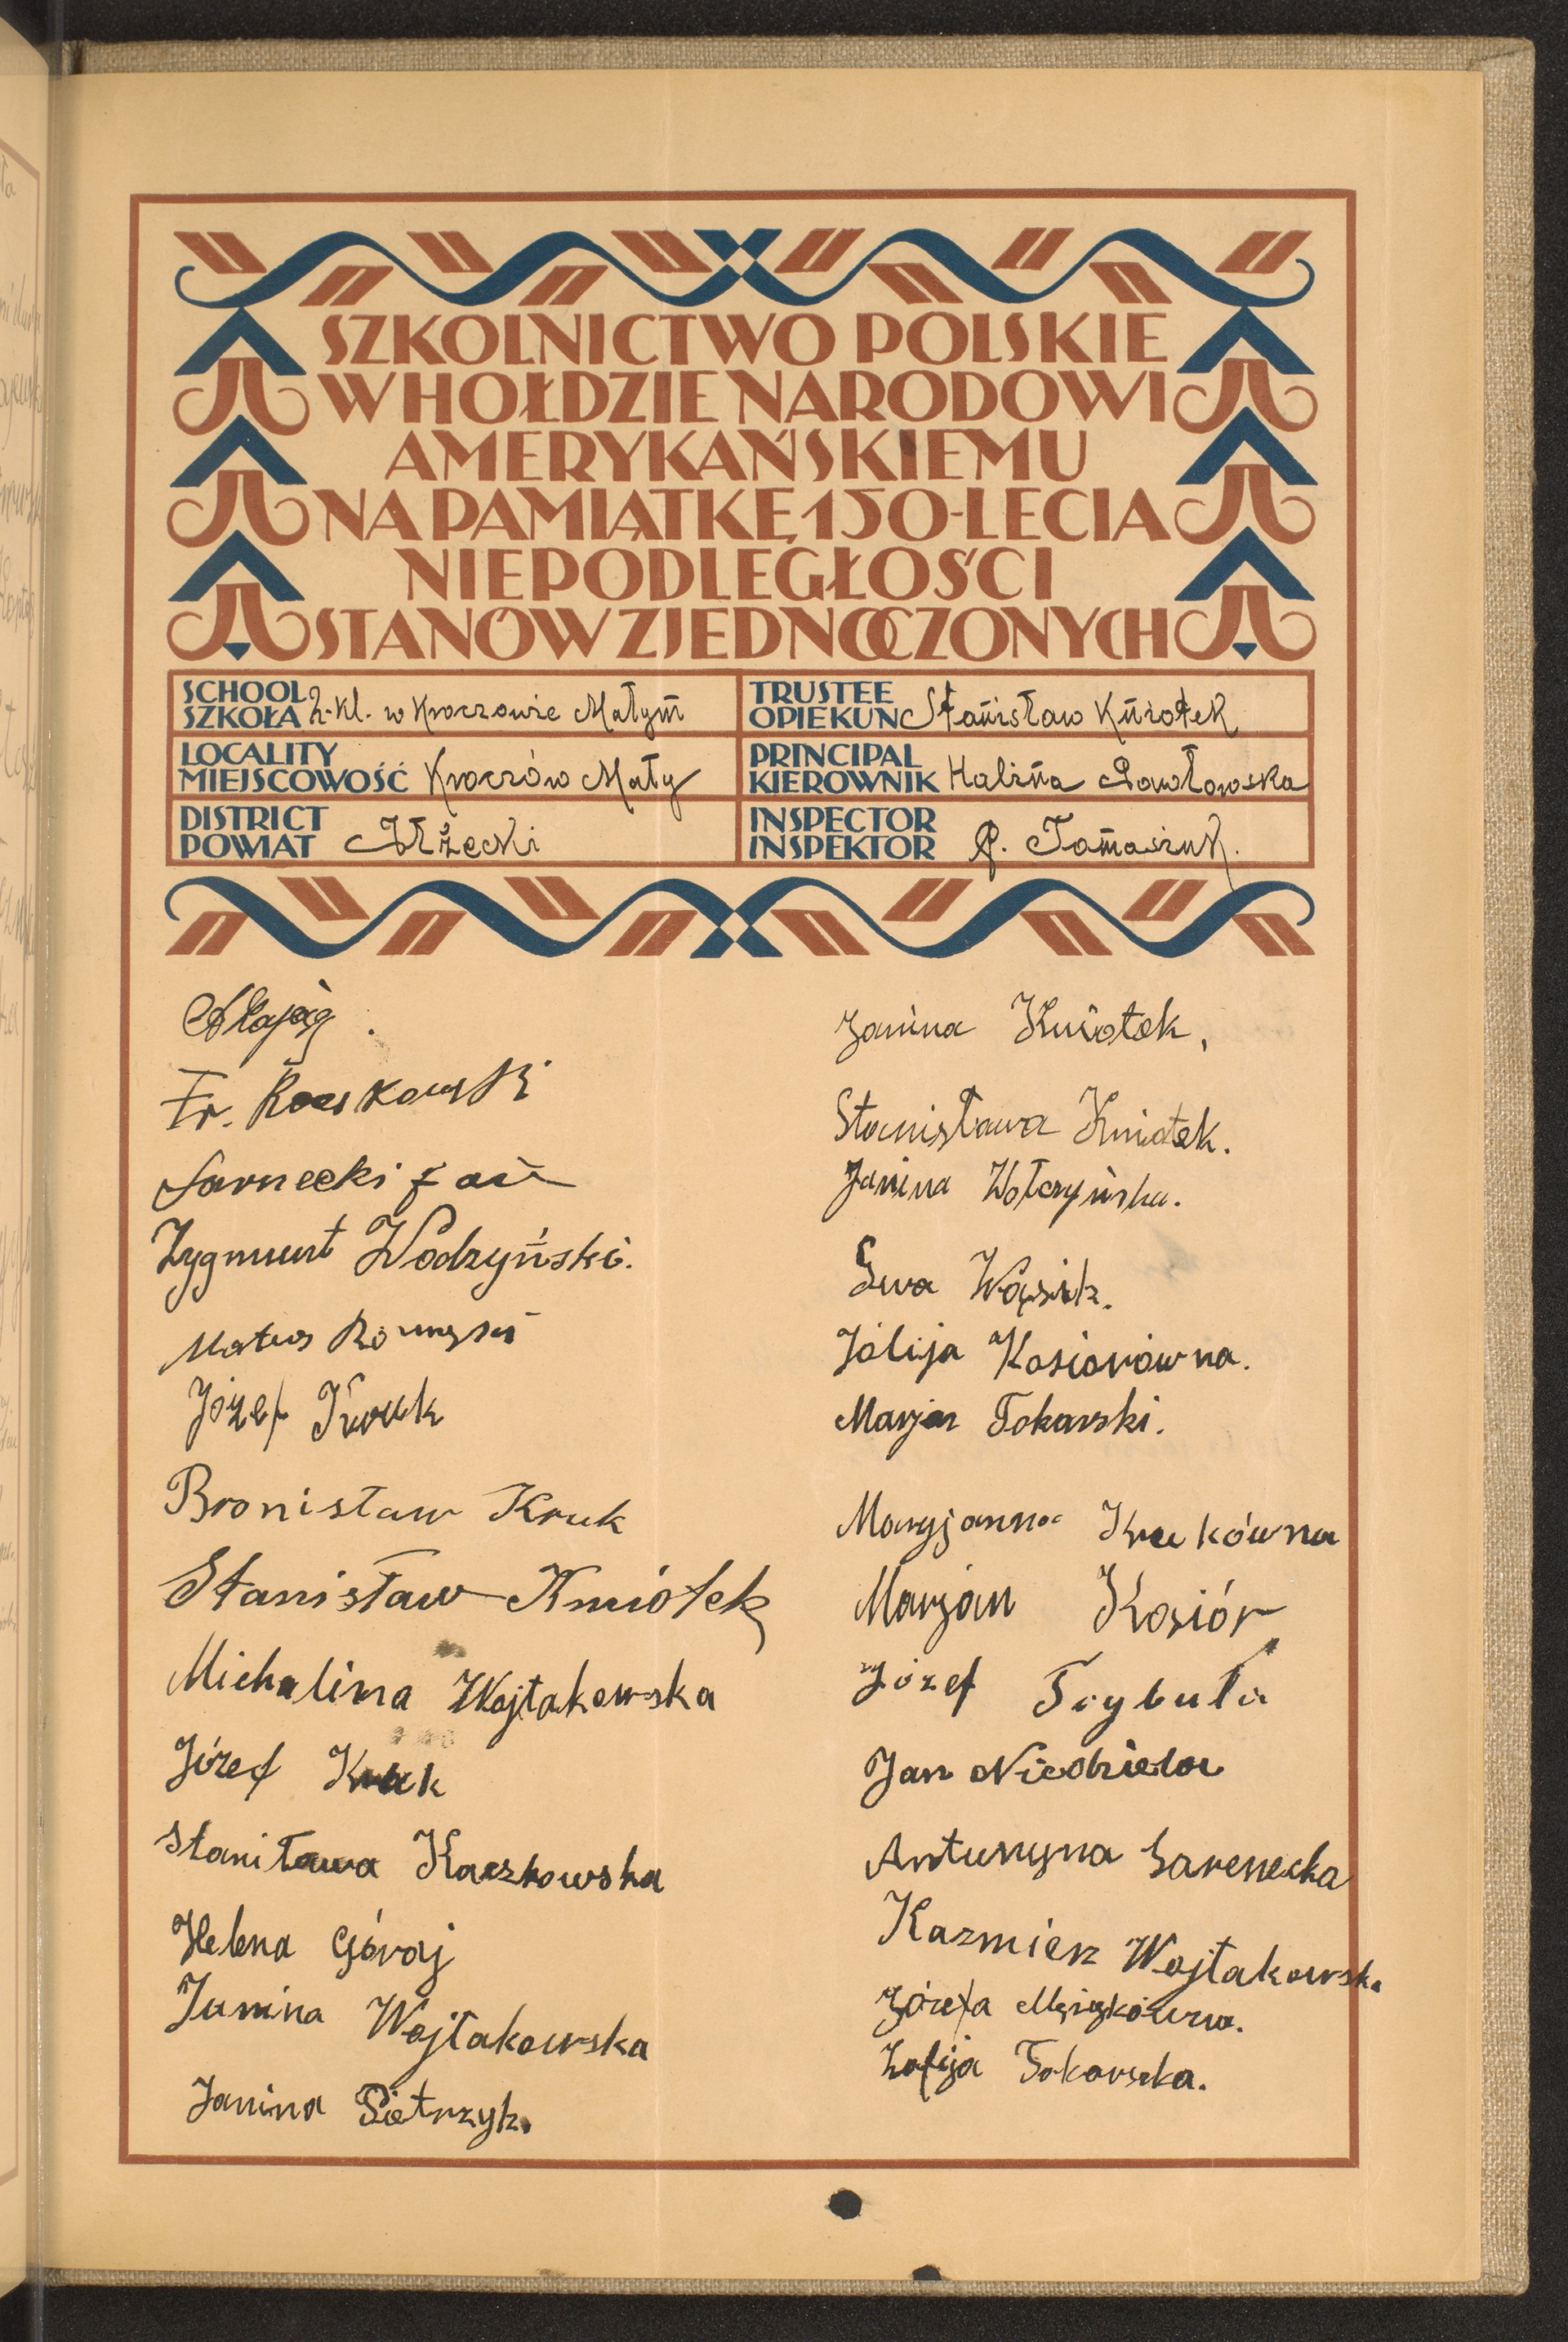 SZKOLNICTWO POLSKIE
W HOŁDZIE NARODOWI
AMERYKAŃSKIEMU
NA PAMIĄTKĘ 150-LECIA
NIEPODLEGŁOŚCI
STANÓW ZJEDNOCZONYCH
SCHOOL
SZKOŁA 2-kl. w Kroczowie Małym
TRUSTEE
OPIEKUN Stanisław Kmiotek
LOCALITY
MIEJSCOWOŚĆ Kroczów Mały
PRINCIPAL
KIEROWNIK Halina Pawłowska
DISTRICT
POWIAT Iłżecki
INSPECTOR
INSPEKTOR Tomasiuk.
Fr.
Sarnecki Jan
Zygmunt Wodzyński.
Józef
Bronisław Kruk
Stanisław Kmiotek
Michalina Wojtakowska
Józef Kruk
Staniława Kaczkowska
Helena Góraj
Janina Wojtakowska
Janina Pietrzyk.
Janina Kmiotek,
Stanisława Kmiotek.
Janina Wołczyńska.
Ewa Wąsik.
Jólija Kosiorówna.
Marjan Tokarski.
Maryjanna Krukówna
Marjan Kosiór
Józef
Jan Niedziela
Antunyna Sarenecka
Kazmierz Wojtakowska
Józefa
Zofija Tokarska.